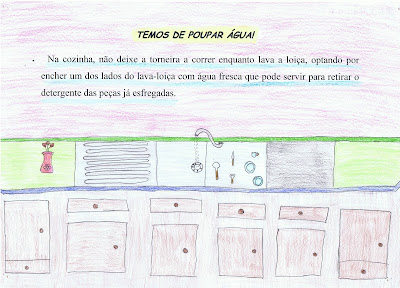 TEMOS DE POUPAR ÁGUA!
• Na cozinha, não deixe a torneira a correr enquanto lava a loiça, optando por
encher um dos lados do lava-loiça com água fresca que pode servir para retirar o
detergente das peças já esfregadas.